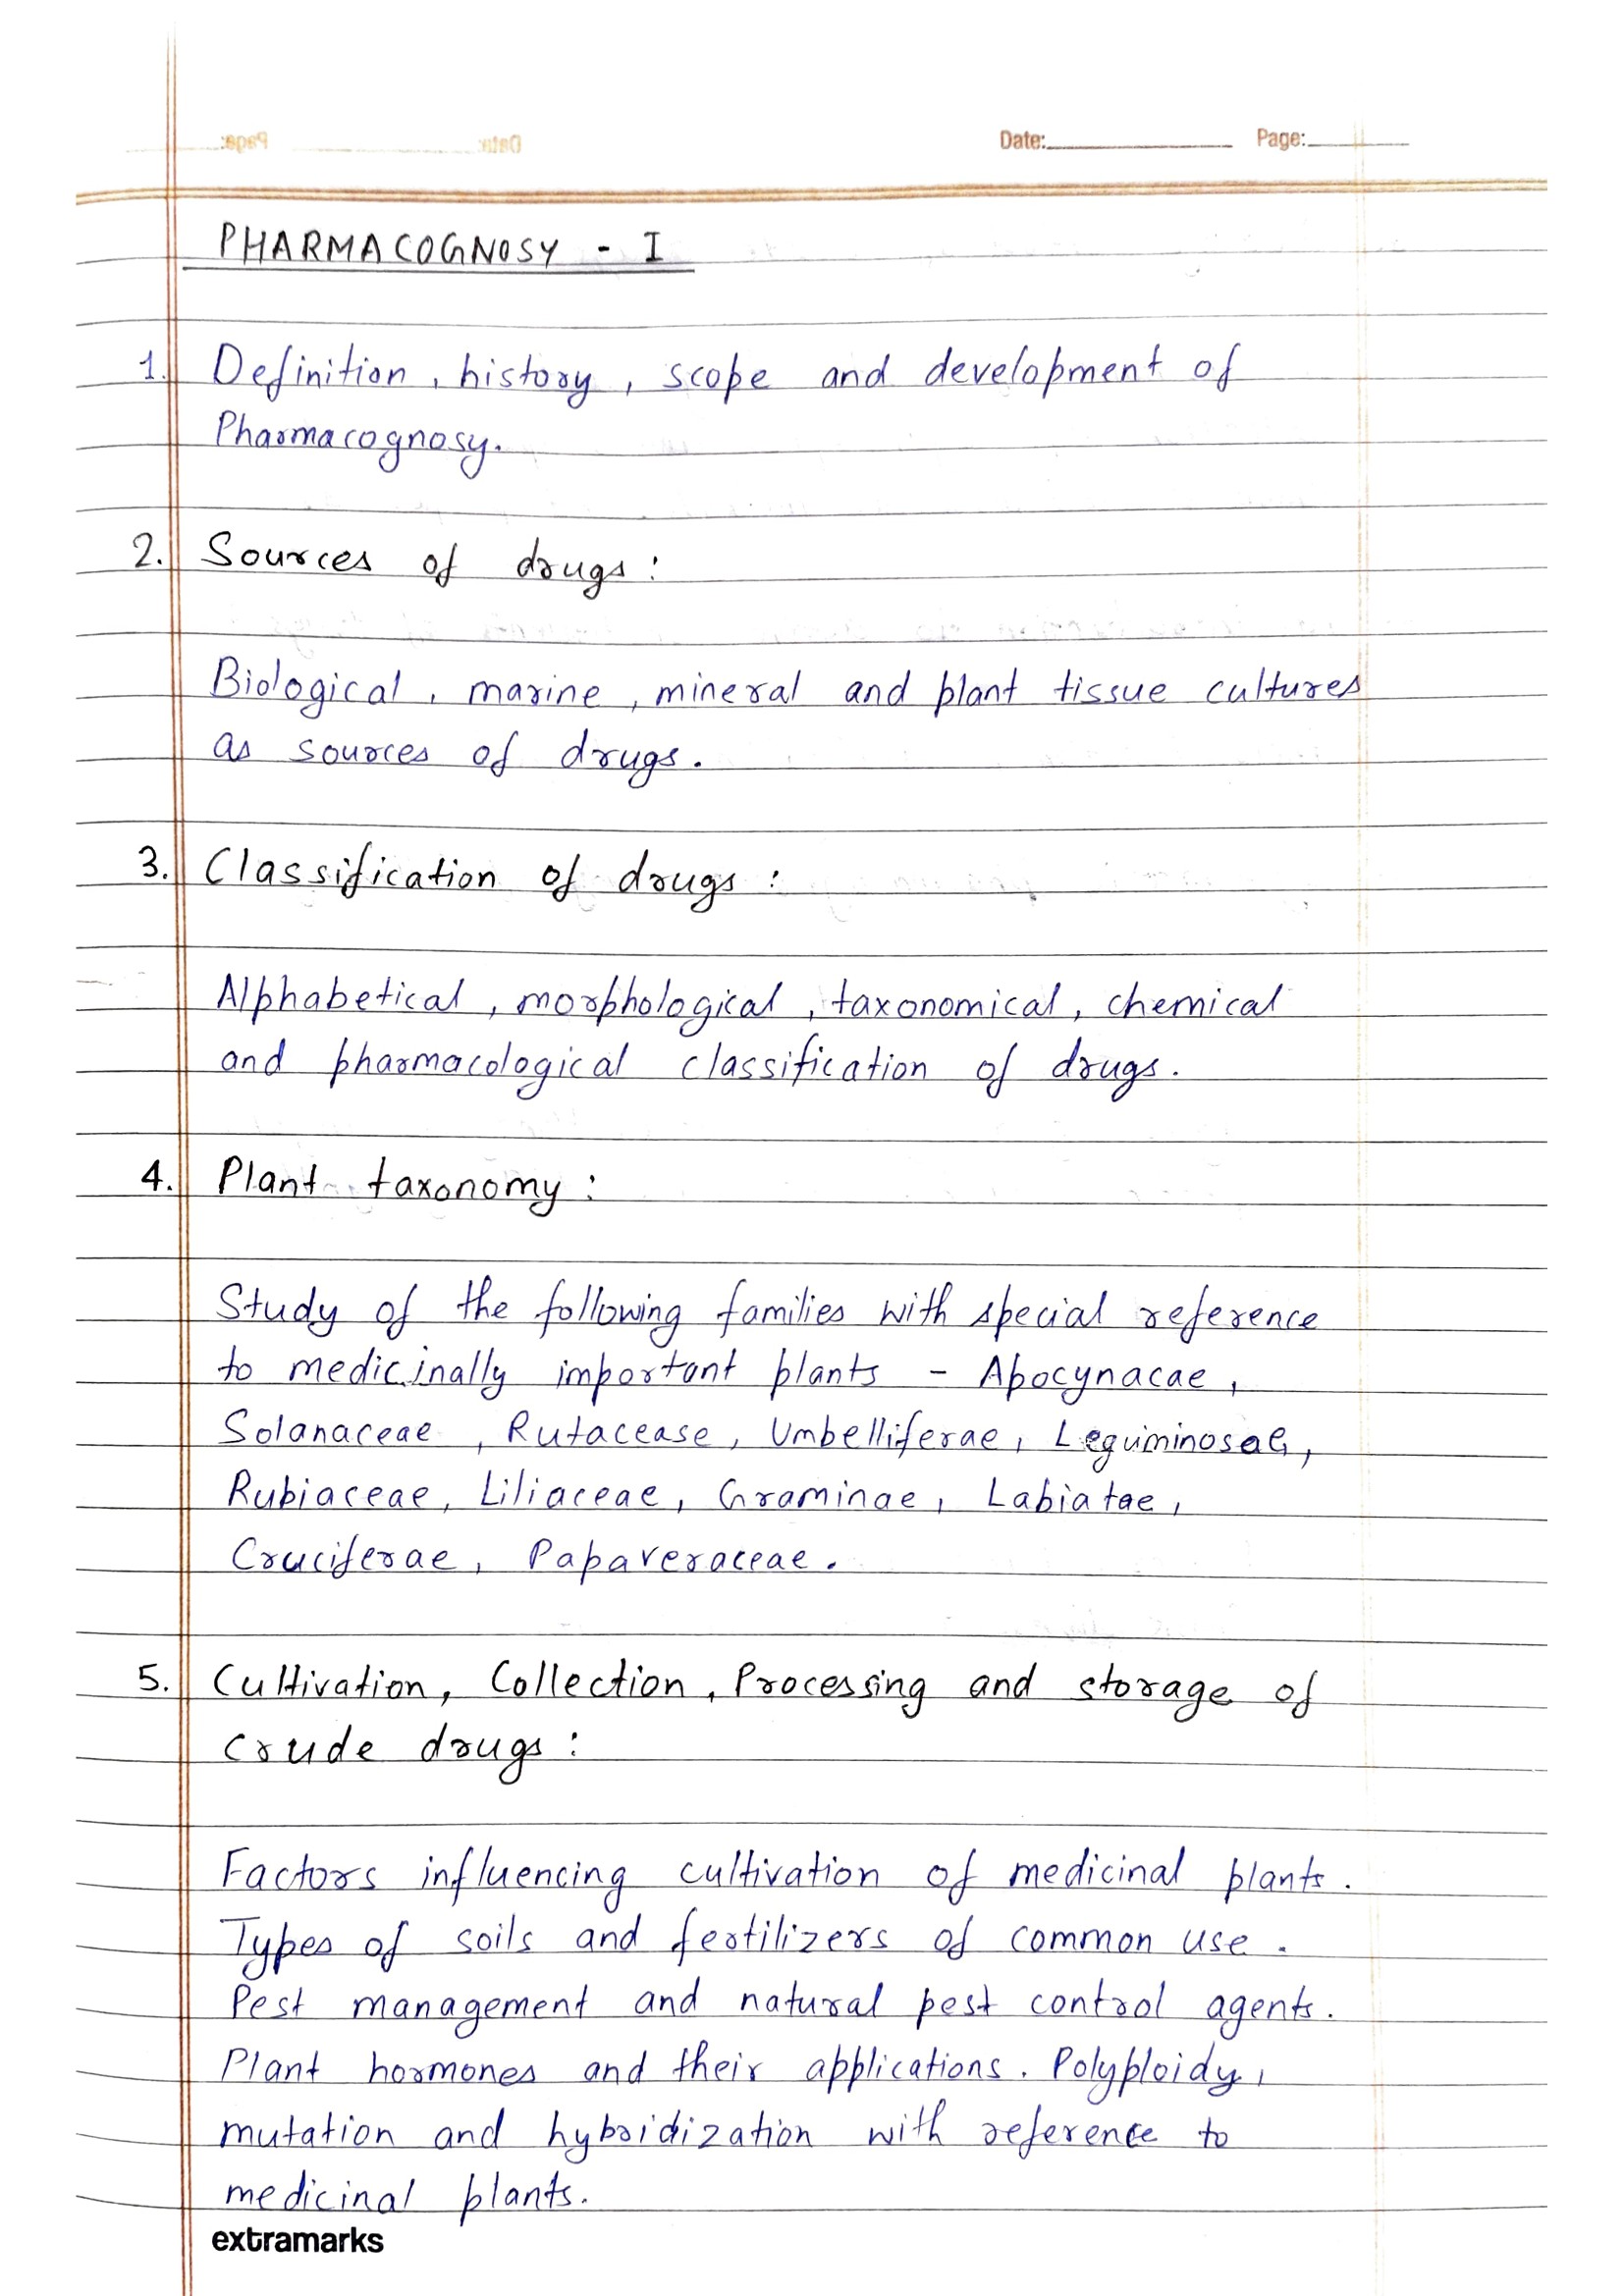 Date: Page:
PHARMACOGNOSY - I
1. Definition, history, scope and development of
Pharmacognosy.
2. Sources of drugs :
Biological, marine, mineral and plant tissue cultures
as sources of drugs.
3. Classification of drugs :
Alphabetical, morphological, taxonomical, chemical
and pharmacological classification of drugs.
4. Plant taxonomy :
Study of the following families with special reference
to medicinally important plants - Apocynacae,
Solanaceae, Rutacease, Umbelliferae, Leguminosae,
Rubiaceae, Liliaceae, Graminae, Labiatae,
Cruciferae, Papaveraceae.
5. Cultivation, Collection, Processing and storage of
crude drugs :
Factors influencing cultivation of medicinal plants.
Types of soils and fertilizers of common use.
Pest management and natural pest control agents.
Plant hormones and their applications. Polyploidy,
mutation and hybridization with reference to
medicinal plants.
extramarks